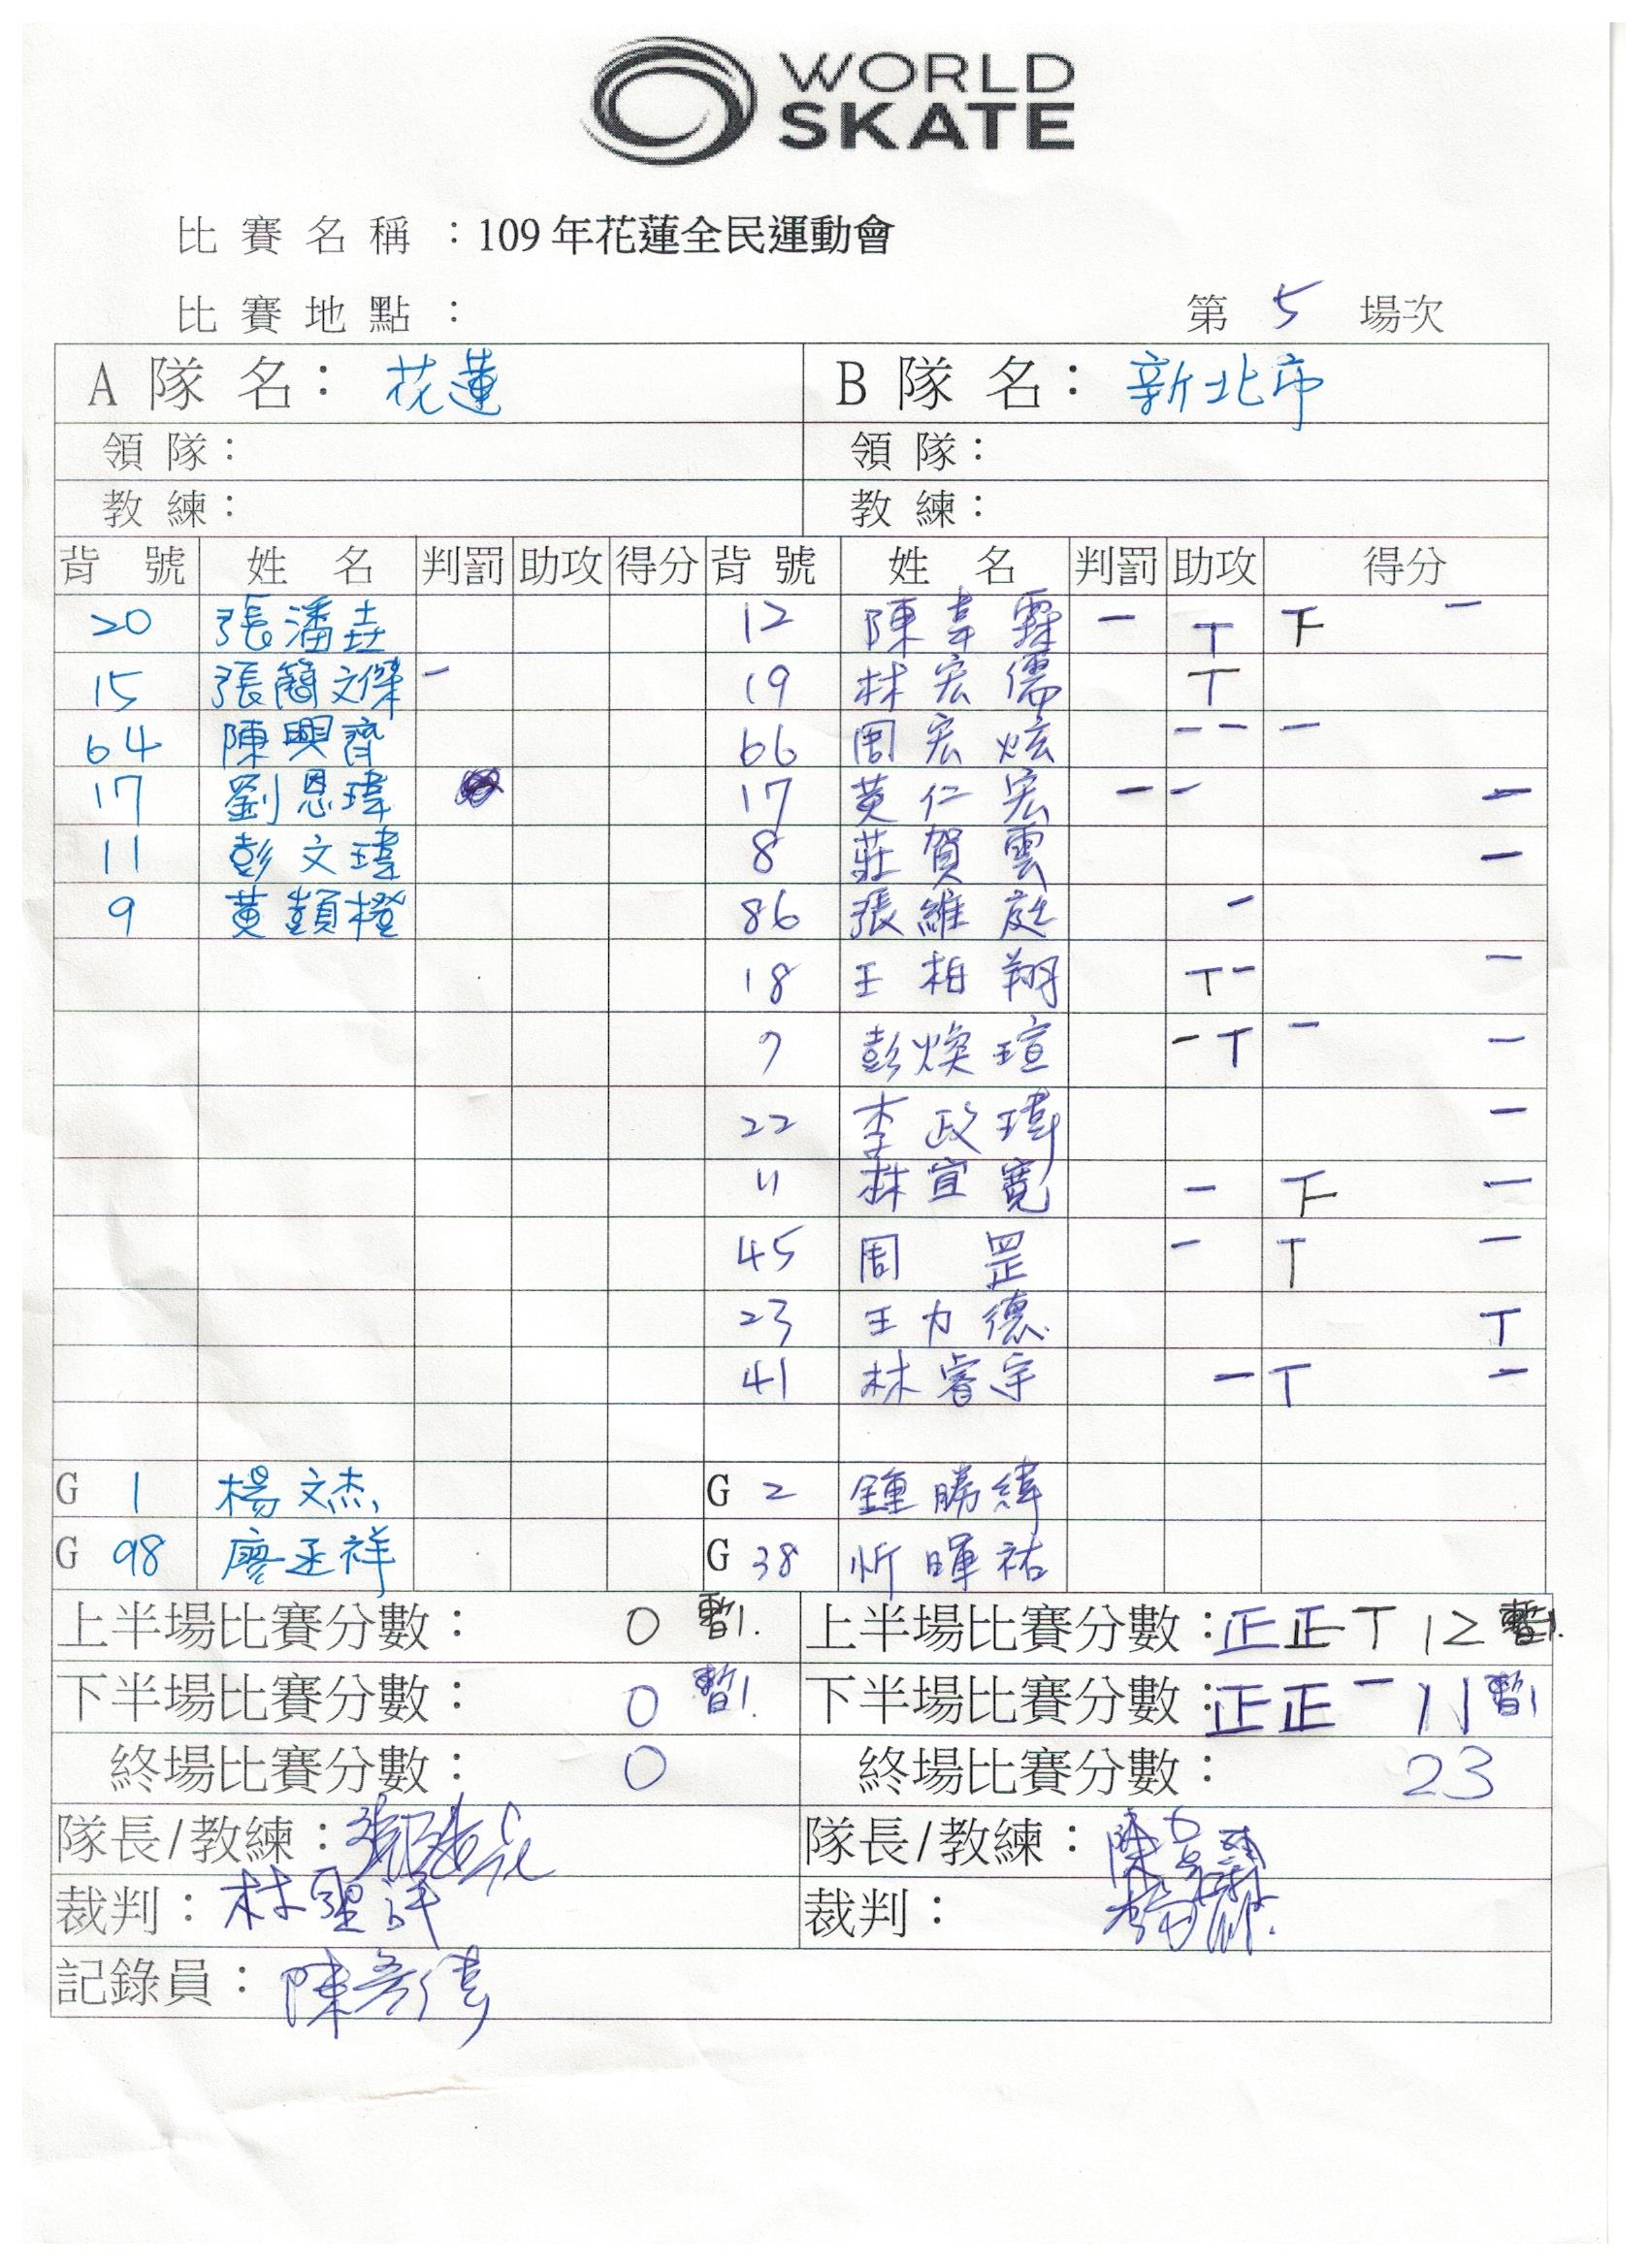 WORLD
SKATE
比賽名稱：109年花蓮全民運動會
比賽地點： 第 5 場次
A隊名：花蓮 B隊名：新北市
領隊： 領隊：
教練： 教練：
背號 姓名 判罰 助攻 得分 背號 姓名 判罰 助攻 得分
20 張潘垚 12 陳韋霖 一 T 下 一
15 張簡文傑 一 19 林宏儒 T
64 陳興齊 66 周宏炫 一 一 一
17 劉恩瑋 17 黃仁宏 一 一 一
11 彭文瑋 8 莊賀雲 一
9 黃顗橙 86 張維庭 一
18 王柏翔 T 一 一
7 彭煥瑄 一 T 一 一
22 李政瑋 一
11 林宜寬 一 下 一
45 周罡 一 T 一
23 王力德 T
41 林睿宇 一 T 一
G 1 楊文杰 G 2 鍾勝緯
G 98 廖丞祥 G 38 忻暉祐
上半場比賽分數： 0 暫1. 上半場比賽分數：正正T 12 暫1.
下半場比賽分數： 0 暫1. 下半場比賽分數：正正一 11 暫1
終場比賽分數： 0 終場比賽分數： 23
隊長/教練： 隊長/教練：
裁判：林聖 裁判：
記錄員：陳彥